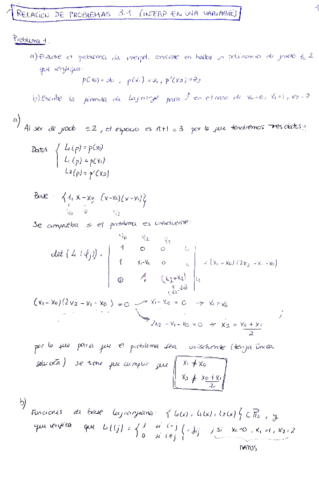 RELACIÓN DE PROBLEMAS 3.1 (INTERP EN UNA VARIABLE) 1
Problema 1
a) Estudie el problema de interpol. consiste en hallar polinomio de grado ≤ 2
que verifique
p(x0)=d0, p(x1)=d1, p'(x2)=d2
b) Escribe la fórmula de Lagrange para en el caso de x0=0, x1=1, x2=2
a)
Al ser de grado ≤2, el espacio es n+1=3 por lo que tendremos tres datos:
Datos { L0(p)=p(x0)
L1(p)=p(x1)
L2(p)=p'(x2)
Base {1, x-x0, (x-x0)(x-x1)}
Se comprueba si el problema es unisolvente:
det(Li(fj)) = | 1 0 0 |
| 1 x1-x0 0 | = (x1-x0)(2x2-x1-x0)
(x1-x0)(2x2-x1-x0)=0 → x1-x0=0 → x1=x0
2x2-x1-x0=0 → x2=(x0+x1)/2
por lo que para que el problema sea unisolvente (tenga única
solución) se tiene que cumplir que x1≠x0
x2≠(x0+x1)/2
b)
Funciones de base lagrangiana: {l0(x), l1(x), l2(x)} ⊂ P2, y
que verifica que Li(lj) = { 1 si i=j
0 si i≠j = δij, si x0=0, x1=1, x2=2
DATOS